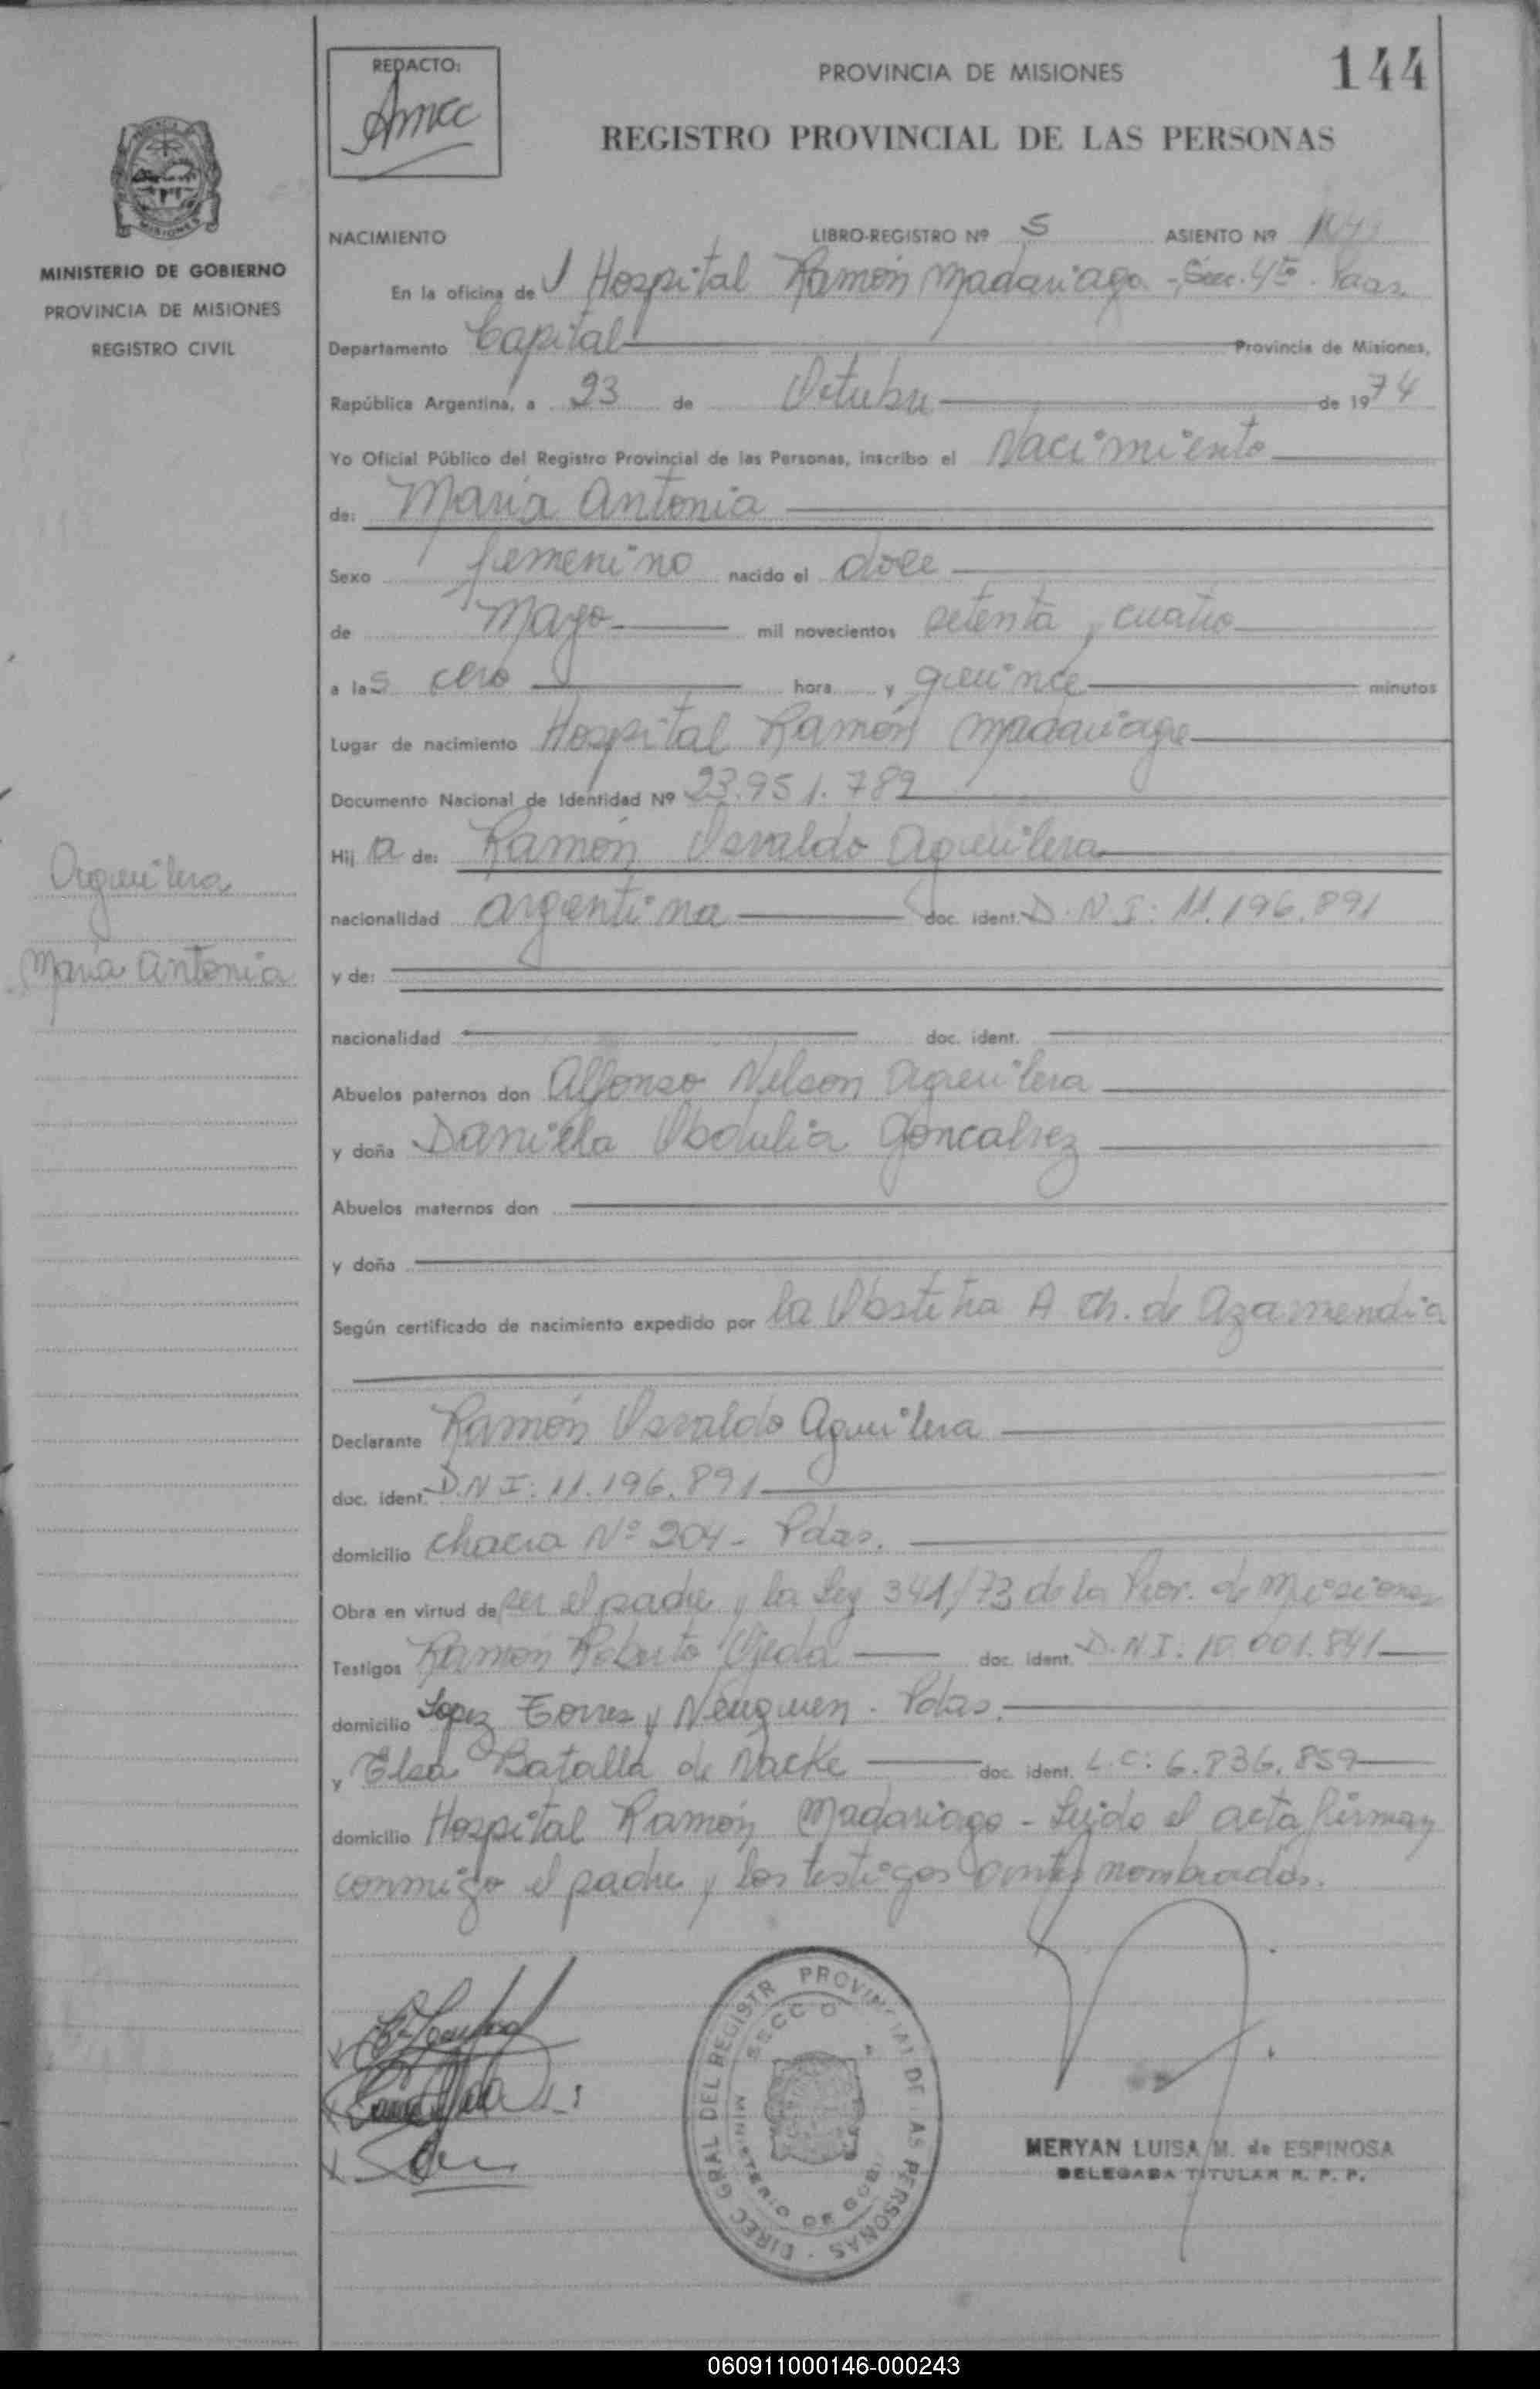 144
REDACTO:
PROVINCIA DE MISIONES
REGISTRO PROVINCIAL DE LAS PERSONAS
MISIONES
MINISTERIO DE GOBIERNO
PROVINCIA DE MISIONES
REGISTRO CIVIL
NACIMIENTO LIBRO-REGISTRO Nº 5 ASIENTO Nº
En la oficina del Hospital Ramón Madariaga - Secc. 4ta. Pdas.
Departamento Capital Provincia de Misiones,
República Argentina, a 23 de Octubre de 1974
Yo Oficial Público del Registro Provincial de las Personas, inscribo el Nacimiento
de: Maria Antonia
Sexo femenino nacido el doce
de Mayo mil novecientos setenta y cuatro
a las cero hora y quince minutos
Lugar de nacimiento Hospital Ramón Madariaga
Documento Nacional de Identidad Nº 23.951.789
Hija de: Ramón Osvaldo Aguilera
nacionalidad argentina doc. ident. D.N.I: 11.196.891
Aguilera
Maria Antonia
y de:
nacionalidad doc. ident.
Abuelos paternos don Alfonso Nelson Aguilera
y doña Daniela Obdulia Goncalvez
Abuelos maternos don
y doña
Según certificado de nacimiento expedido por la Obstetra A. Ch. de Azamendia
Declarante Ramón Osvaldo Aguilera
doc. ident. D.N.I: 11.196.891
domicilio chacra Nº 204 - Pdas.
Obra en virtud de ser el padre y la Ley 341/73 de la Prov. de Misiones
Testigos Ramón Roberto Ojeda doc. ident. D.N.I. 10.001.841
domicilio Lopez Torres y Neuquen. Pdas.
y Elsa Batalla de Nacke doc. ident. L.C: 6.836.859
domicilio Hospital Ramón Madariaga - Leido el acta firman
conmigo el padre y los testigos antes nombrados.
DIREC GRAL DEL REGISTR PROVINCIAL DE LAS PERSONAS
MINISTERIO DE GOB.
MERYAN LUISA M. de ESPINOSA
DELEGADA TITULAR R. P. P.
060911000146-000243